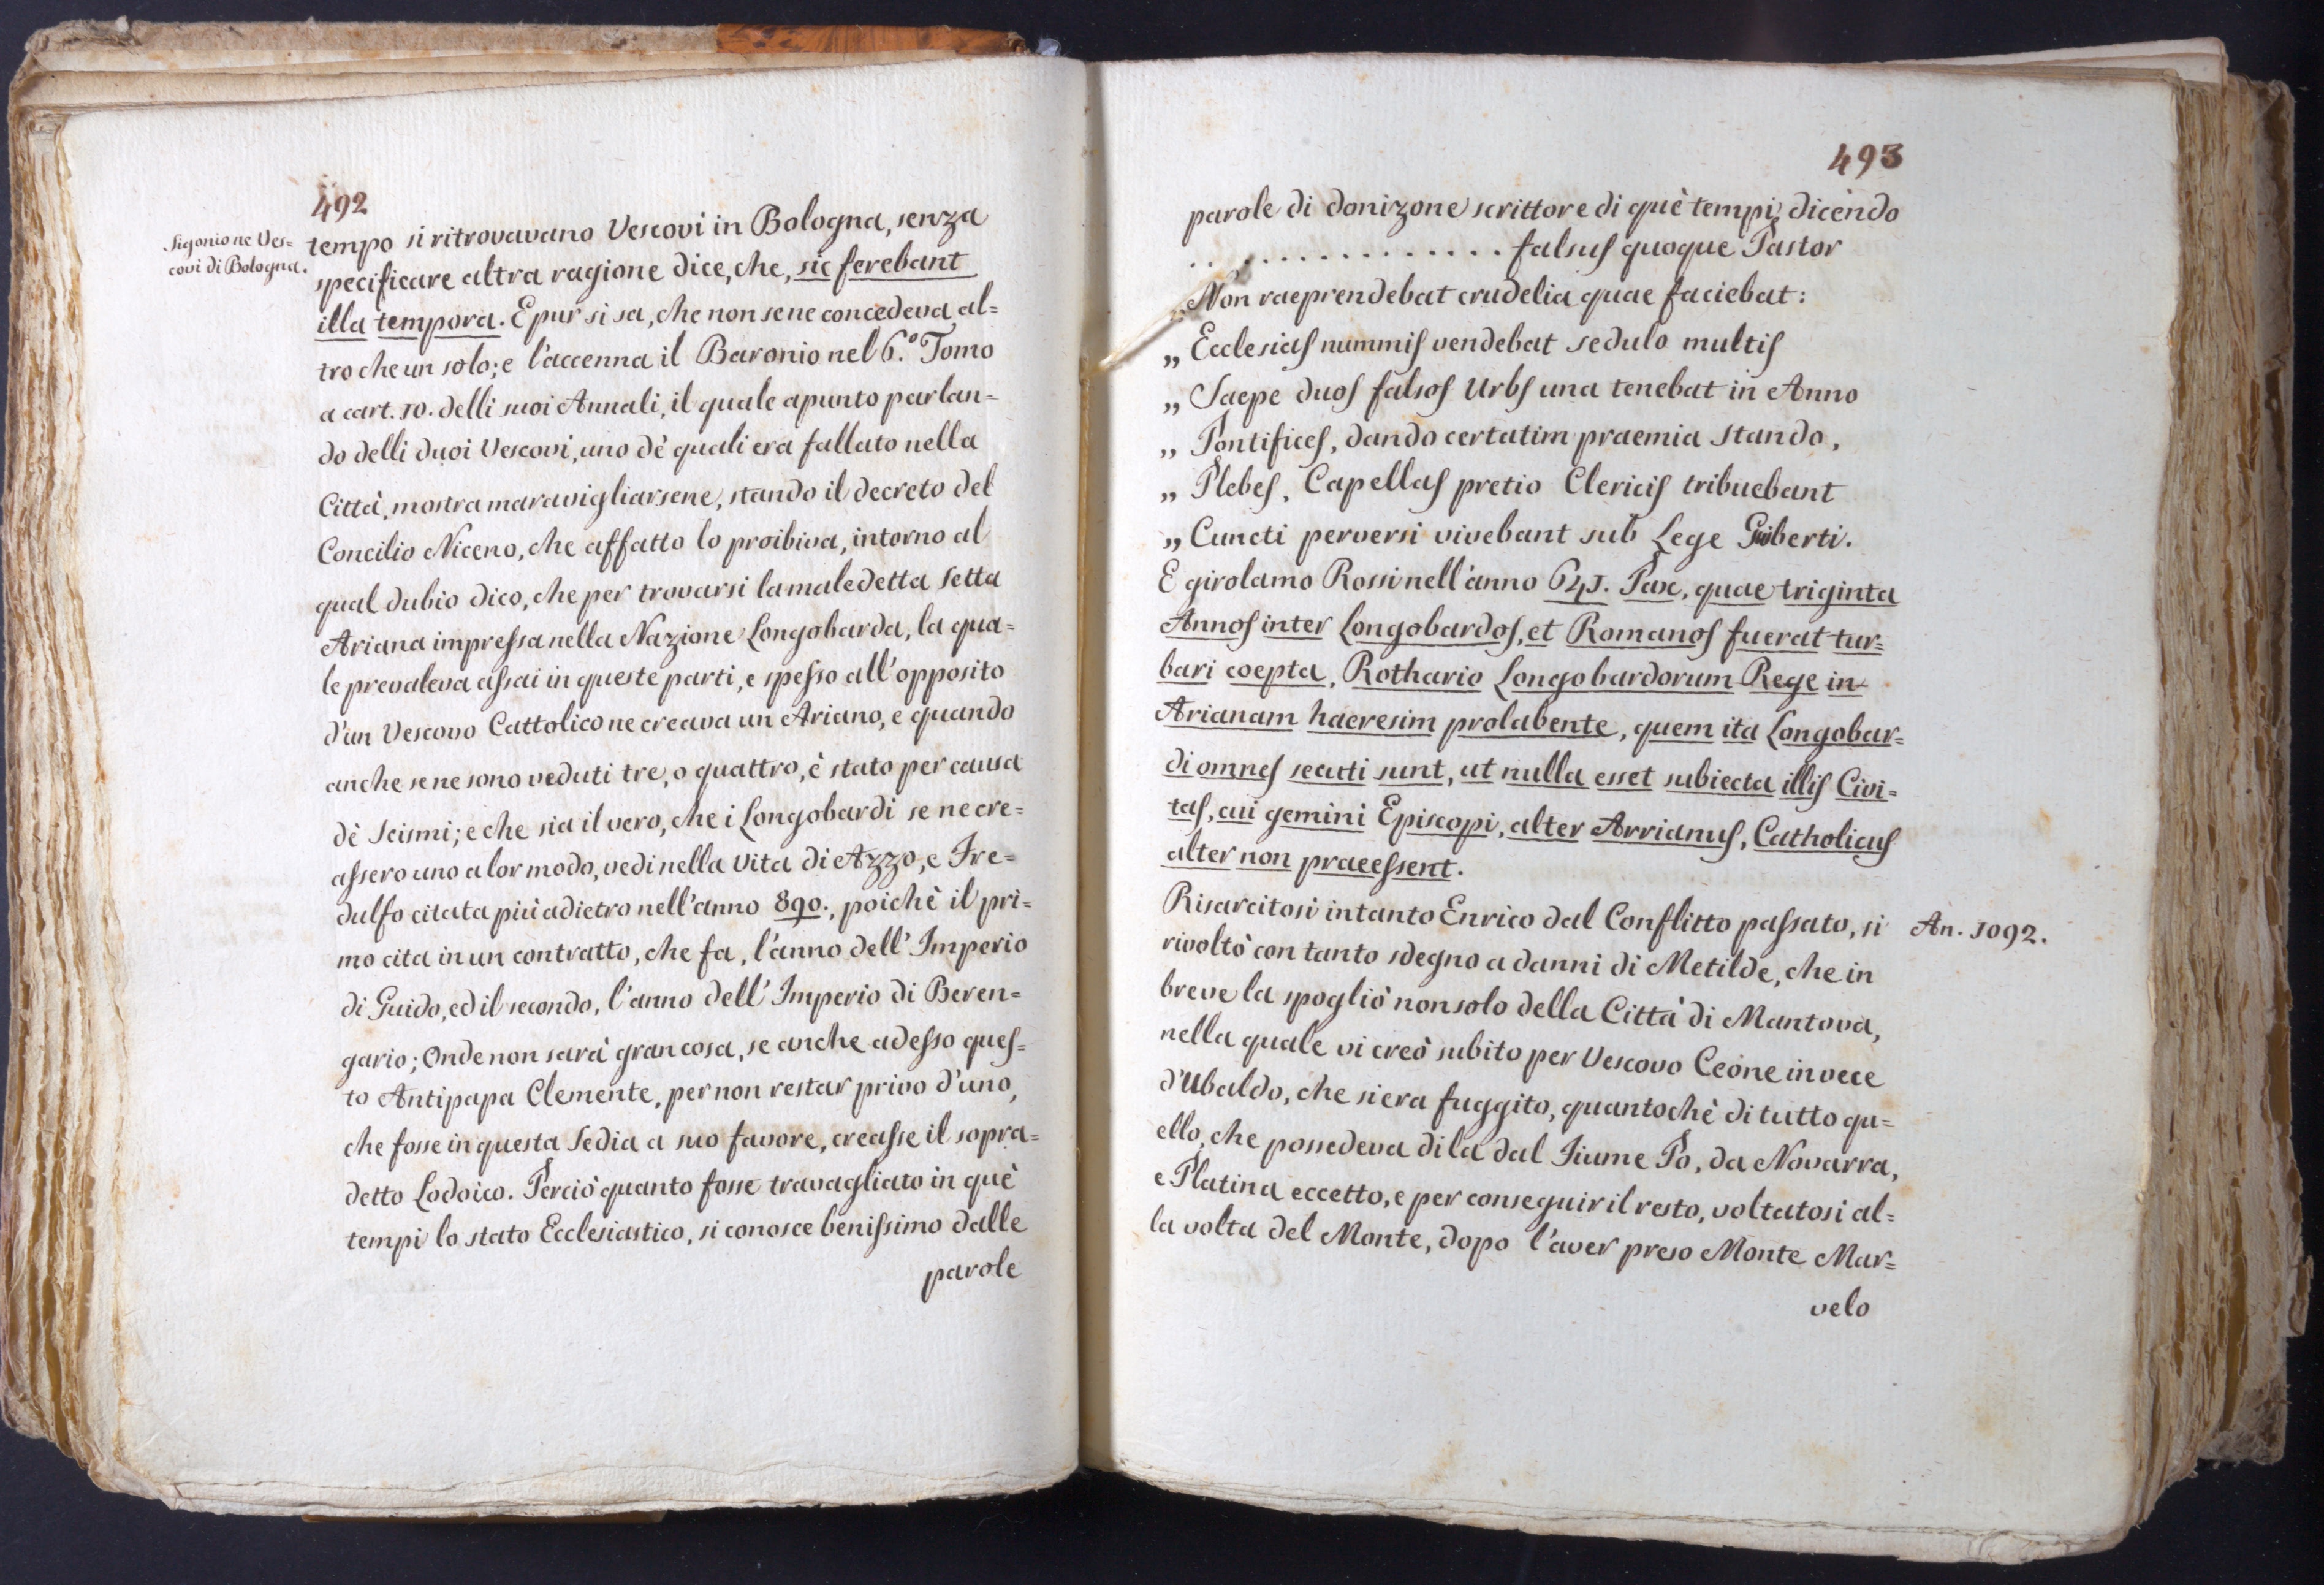 492
Sigonio ne Ves=
covi di Bologna.
tempo si ritrovavano Vescovi in Bologna, senza
specificare altra ragione dice, che, sic ferebant
illa tempora. E pur si sa, che non se ne concedeva al=
tro che un solo; e l'accenna il Baronio nel 6.º Tomo
a cart. 10. delli suoi Annali, il quale apunto parlan=
do delli duoi Vescovi, uno dè quali era fallato nella
Città, mostra maravigliarsene, stando il decreto del
Concilio Niceno, che affatto lo proibiva, intorno al
qual dubio dico, che per trovarsi la maledetta Setta
Ariana impressa nella Nazione Longobarda, la qua=
le prevaleva assai in queste parti, e spesso all'opposito
d'un Vescovo Cattolico ne creava un Ariano, e quando
anche se ne sono veduti tre, o quattro, è stato per causa
dè Scismi; e che sia il vero, che i Longobardi se ne cre=
assero uno a lor modo, vedi nella Vita di Azzo, e Fre=
dulfo citata più adietro nell'anno 890., poichè il pri=
mo cita in un contratto, che fa, l'anno dell'Imperio
di Guido, ed il secondo, l'anno dell'Imperio di Beren=
gario; Onde non sarà gran cosa, se anche adesso ques=
to Antipapa Clemente, per non restar privo d'uno,
che fosse in questa Sedia a suo favore, creasse il sopra=
detto Lodoico. Perciò quanto fosse travagliato in què
tempi lo stato Ecclesiastico, si conosce benissimo dalle
parole
493
parole di donizone scrittore di què tempi, dicendo
. . . . . . . . . . . . . . . . falsus quoque Pastor
„ Non raeprendebat crudelia quae faciebat:
„ Ecclesias nummis vendebat sedulo multis
„ Saepe duos falsos Urbs una tenebat in Anno
„ Pontifices, dando certatim praemia stando,
„ Plebes, Capellas pretio Clericis tribuebant
„ Cuncti perversi vivebant sub Lege Guiberti.
E girolamo Rossi nell'anno 641. Pax, quae triginta
Annos inter Longobardos, et Romanos fuerat tur=
bari coepta, Rothario Longobardorum Rege in
Arianam haeresim prolabente, quem ita Longobar=
di omnes secuti sunt, ut nulla esset subiecta illis Civi=
tas, cui gemini Episcopi, alter Arrianus, Catholicus
alter non praeessent.
Risarcitosi intanto Enrico dal Conflitto passato, si
An. 1092.
rivoltò con tanto sdegno a danni di Metilde, che in
breve la spogliò non solo della Città di Mantova,
nella quale vi creò subito per Vescovo Ceone in vece
d'Ubaldo, che si era fuggito, quantochè di tutto qu=
ello, che possedeva di la dal Fiume Po, da Novarra,
e Platina eccetto, e per conseguir il resto, voltatosi al=
la volta del Monte, dopo l'aver preso Monte Mar=
velo